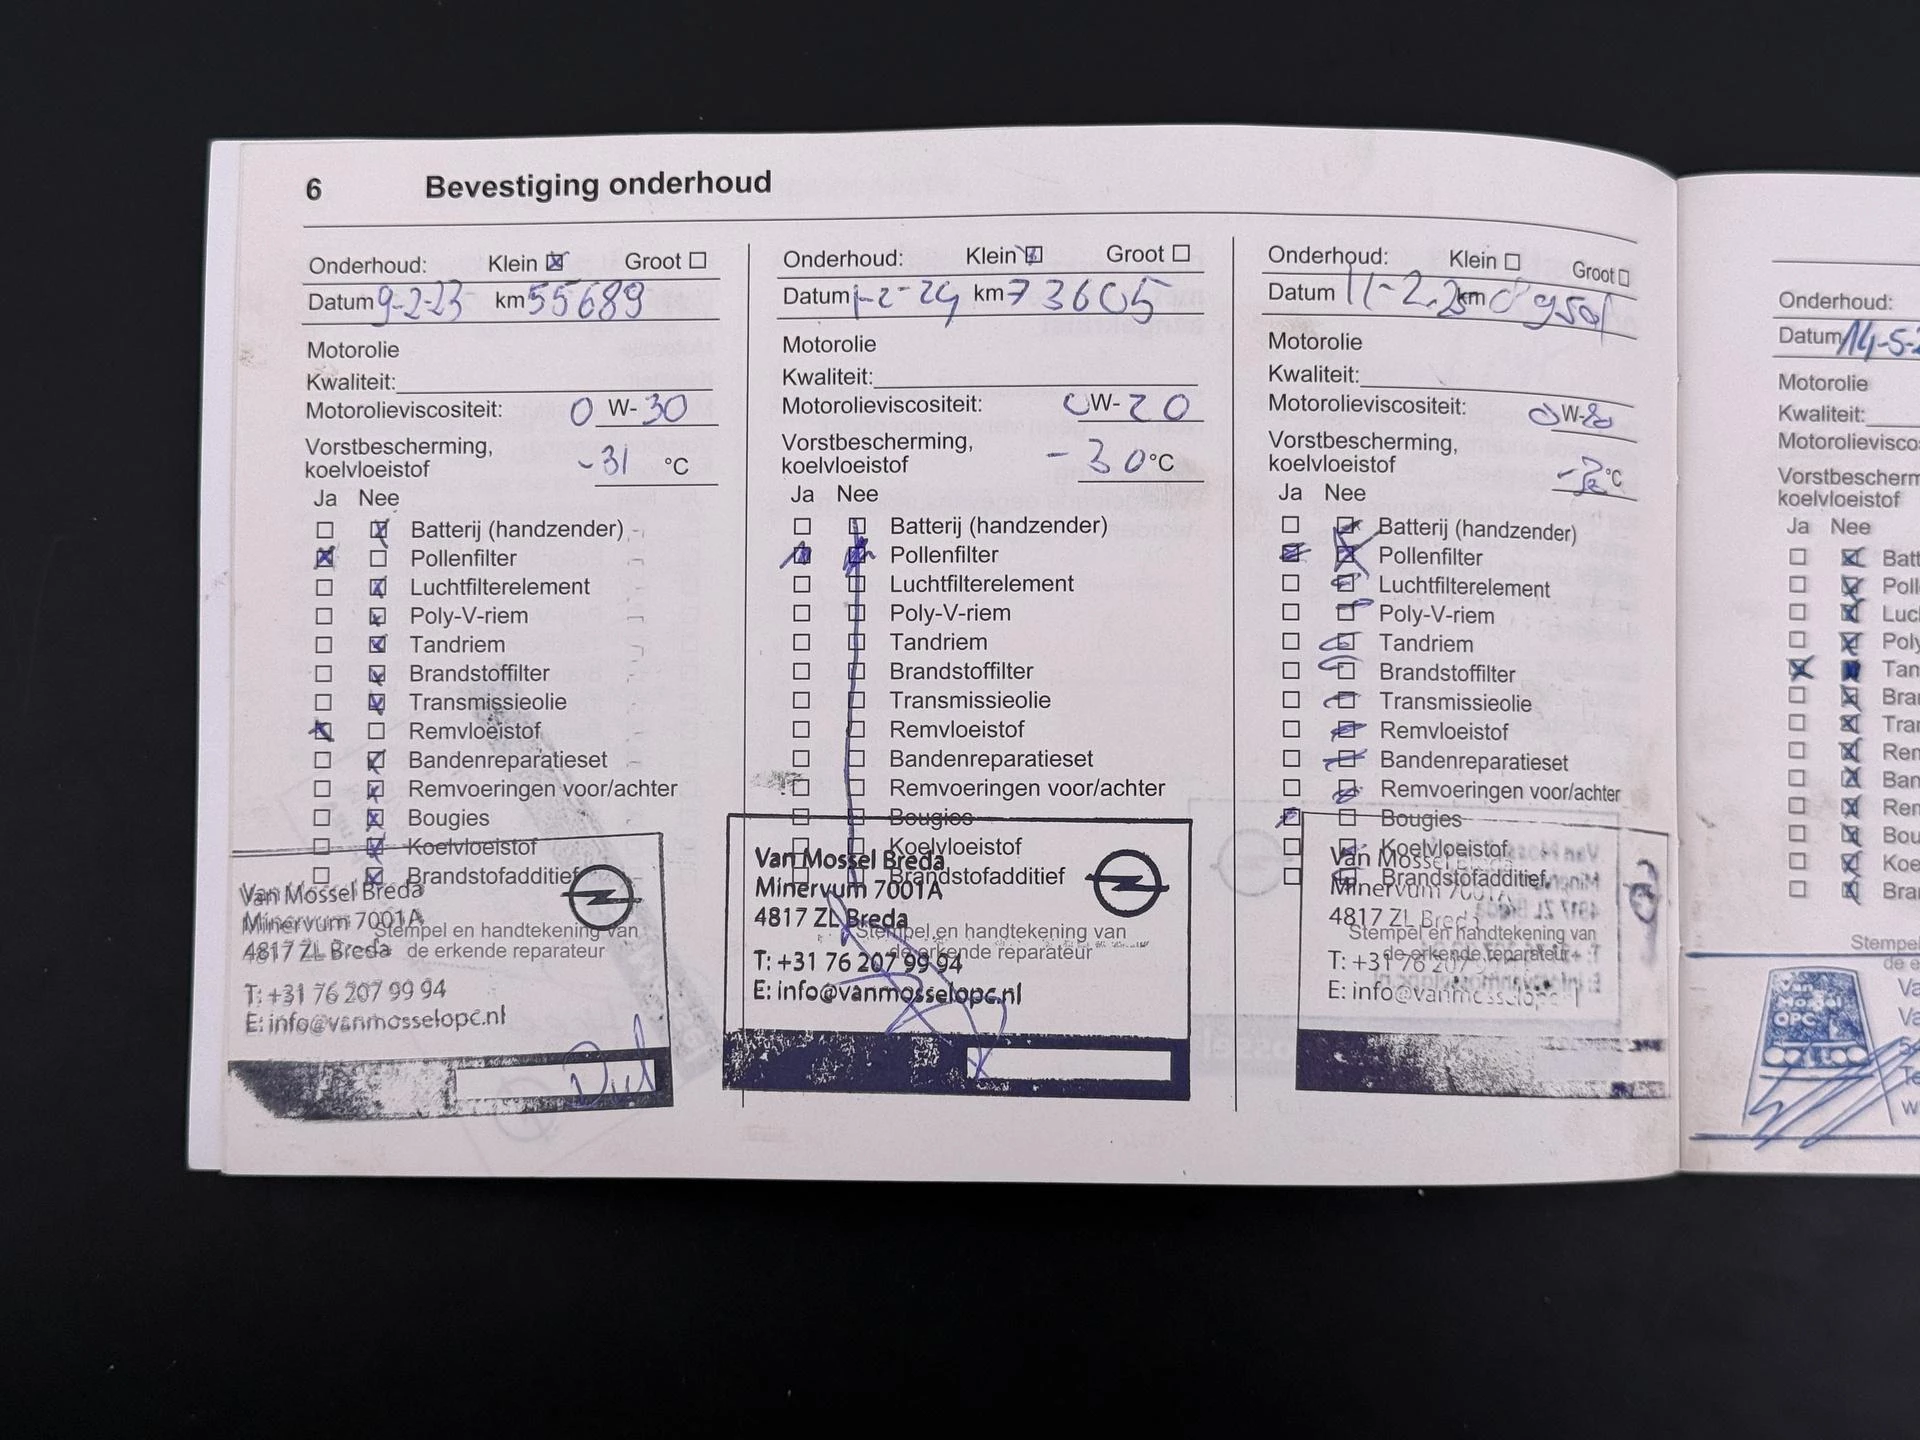 6 Bevestiging onderhoud
Onderhoud: Klein Groot
Datum 9-2-23 km 55689
Motorolie
Kwaliteit:
Motorolieviscositeit: 0 W-30
Vorstbescherming,
koelvloeistof -31 °C
Ja Nee
Batterij (handzender)
Pollenfilter
Luchtfilterelement
Poly-V-riem
Tandriem
Brandstoffilter
Transmissieolie
Remvloeistof
Bandenreparatieset
Remvoeringen voor/achter
Bougies
Koelvloeistof
Brandstofadditief
Stempel en handtekening van
de erkende reparateur
Van Mossel Breda
Minervum 7001A
4817 ZL Breda
T: +31 76 207 99 94
E: info@vanmosselopc.nl
Onderhoud: Klein Groot
Datum 1-2-24 km 73605
Motorolie
Kwaliteit:
Motorolieviscositeit: 0W-20
Vorstbescherming,
koelvloeistof -30°C
Ja Nee
Batterij (handzender)
Pollenfilter
Luchtfilterelement
Poly-V-riem
Tandriem
Brandstoffilter
Transmissieolie
Remvloeistof
Bandenreparatieset
Remvoeringen voor/achter
Bougies
Koelvloeistof
Brandstofadditief
Stempel en handtekening van
de erkende reparateur
Van Mossel Breda
Minervum 7001A
4817 ZL Breda
T: +31 76 207 99 94
E: info@vanmosselopc.nl
Onderhoud: Klein Groot
Datum 11-2-25 km
Motorolie
Kwaliteit:
Motorolieviscositeit: 0W-20
Vorstbescherming,
koelvloeistof °C
Ja Nee
Batterij (handzender)
Pollenfilter
Luchtfilterelement
Poly-V-riem
Tandriem
Brandstoffilter
Transmissieolie
Remvloeistof
Bandenreparatieset
Remvoeringen voor/achter
Bougies
Koelvloeistof
Brandstofadditief
Stempel en handtekening van
de erkende reparateur
Van Mossel
Minervum
4817 ZL Breda
T: +31 76 207
E: info@vanmosselopc
Onderhoud:
Datum 14-5-2
Motorolie
Kwaliteit:
Motorolievisco
Vorstbescherm
koelvloeistof
Ja Nee
Batt
Poll
Luc
Poly
Tan
Bra
Tra
Rem
Ban
Rem
Bou
Koe
Bra
Stempel
de e
Van
Mossel
OPC